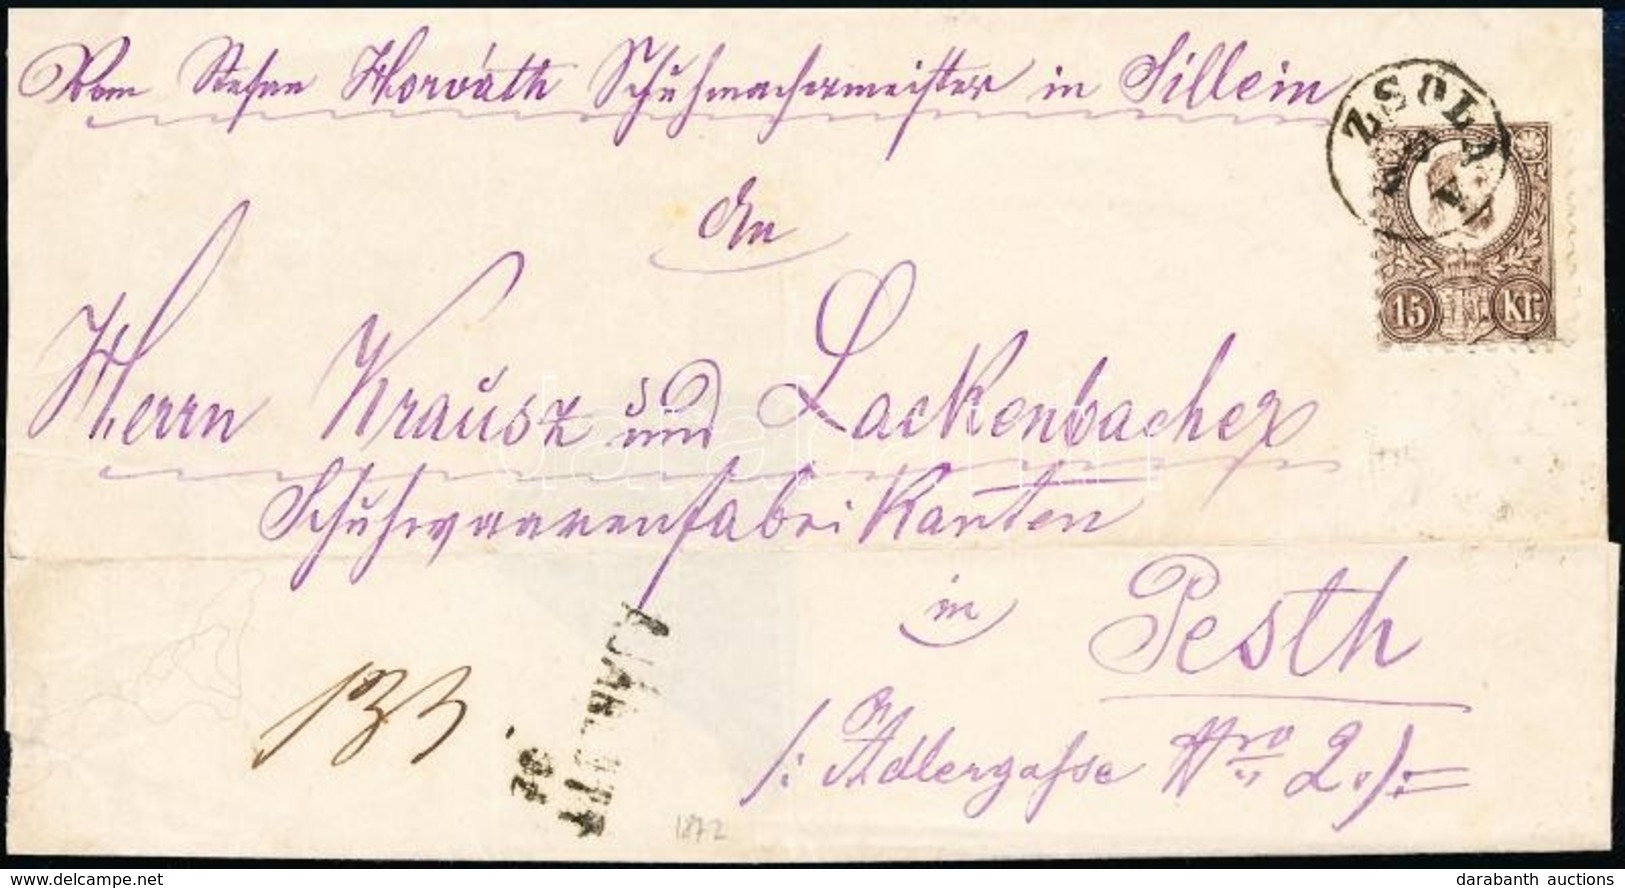 Vom Stefan Horváth Schuhmachermeister in Sillein
ZSOLNA
An
15 Kr.
Herrn Krausz und Lackenbacher
darabanth
Schuhwaarenfabrikanten
in Pesth
AJÁNLOTT
133
/: Adlergasse Nro 2. /:
1872
www.delcampe.net
darabanth auctions